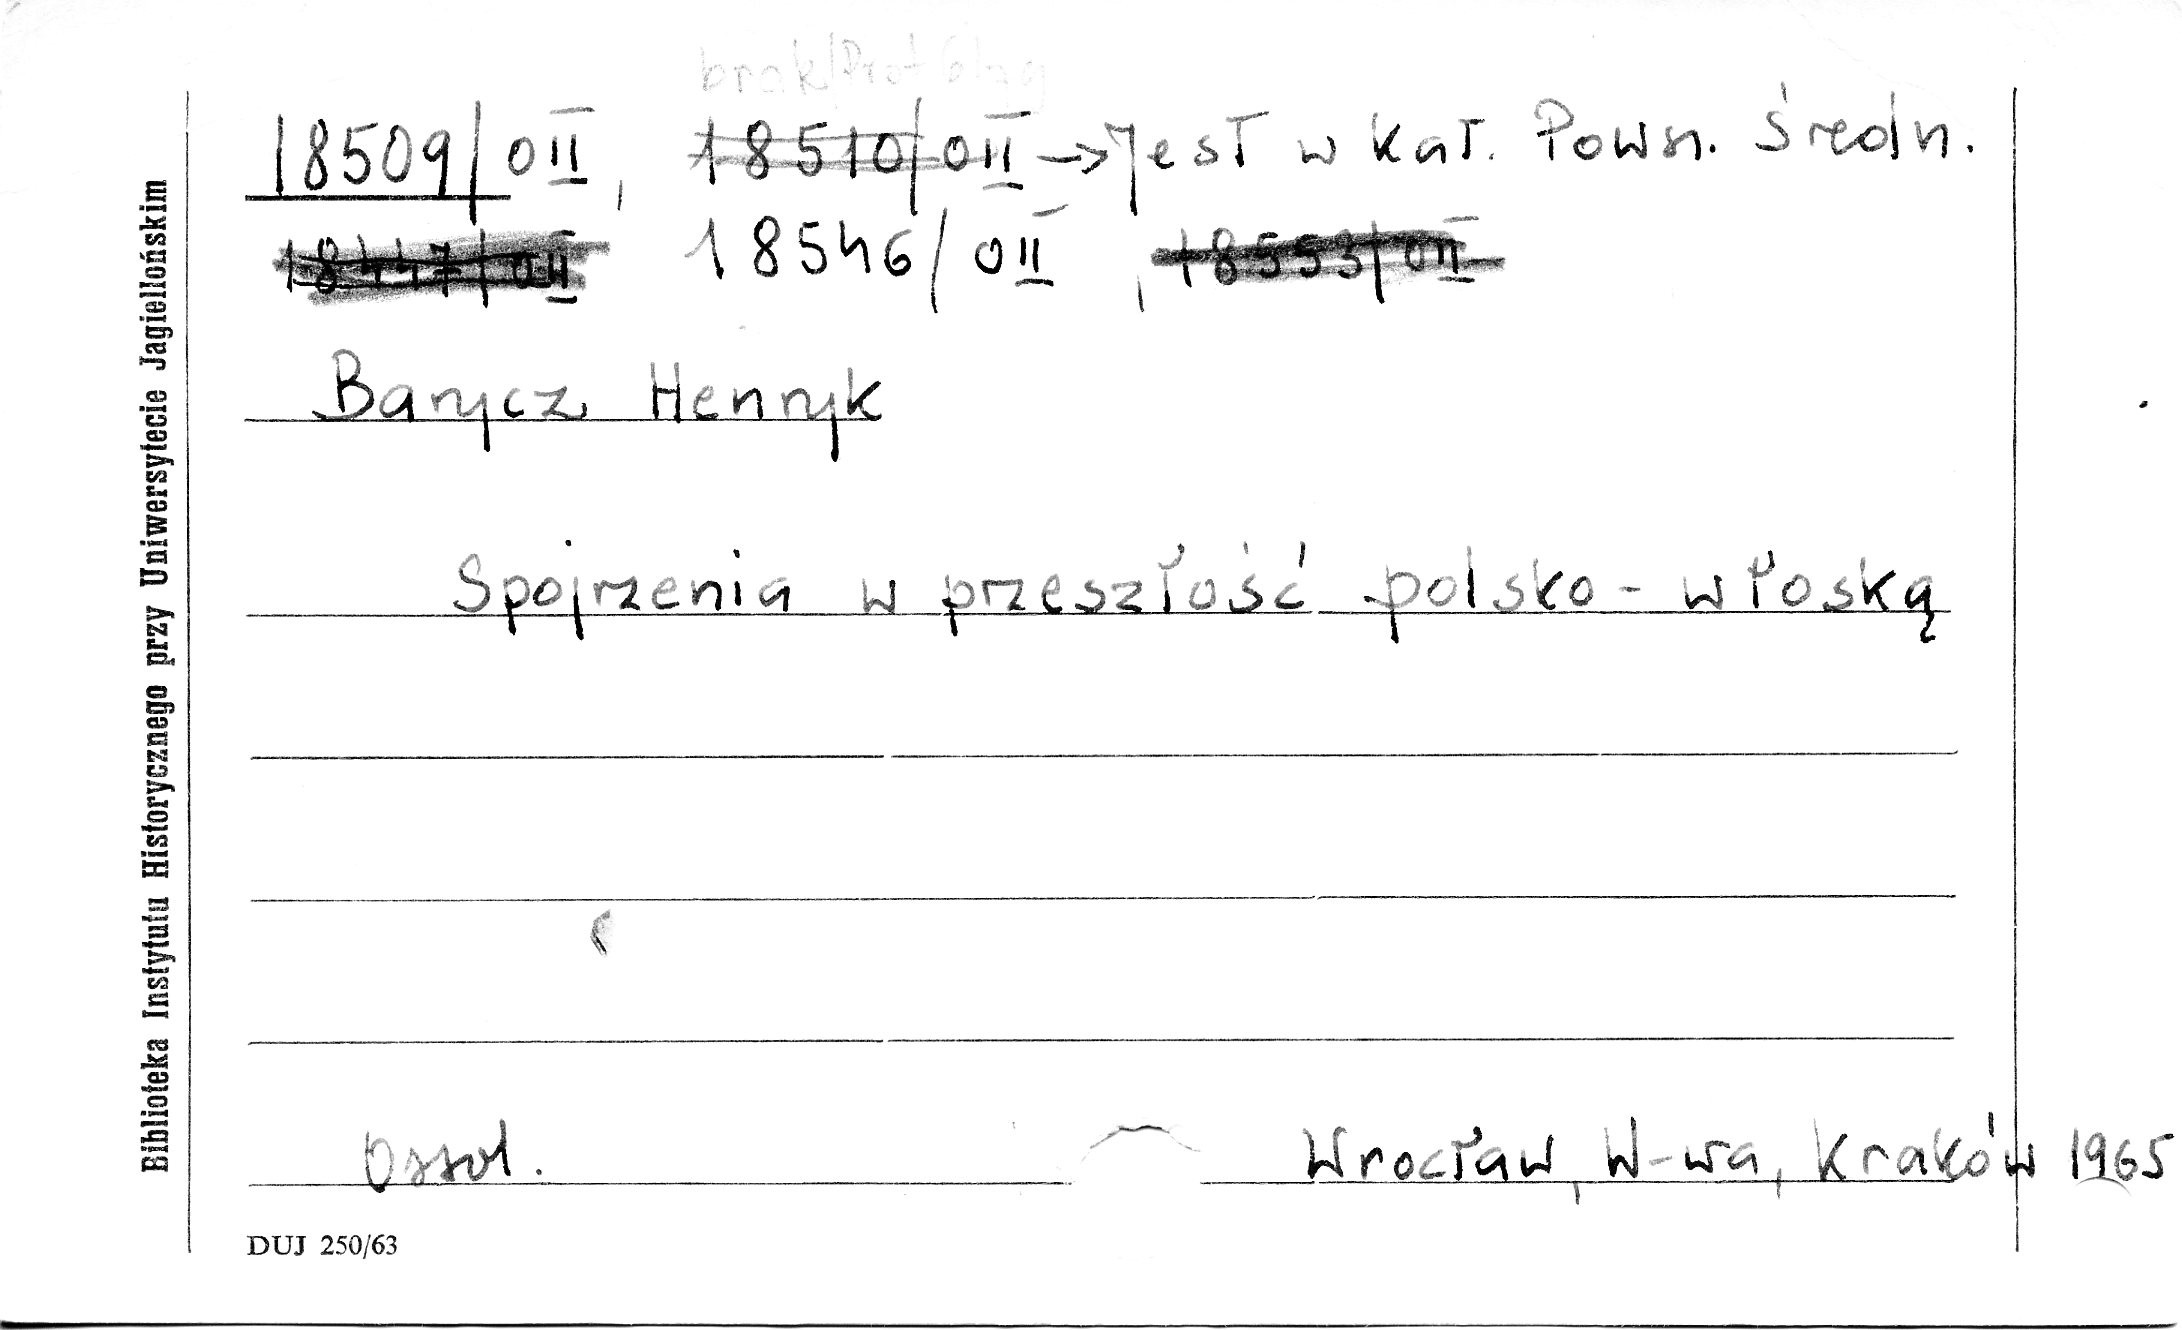 brak
18509/0II, 18510/0II → Jest w Kat. Powsz. Średn.
18447/0II 18546/0II, 18553/0II
Barycz Henryk
Spojrzenia w przeszłość polsko-włoską
Ossol. Wrocław, W-wa, Kraków 1965
DUJ 250/63
Biblioteka Instytutu Historycznego przy Uniwersytecie Jagiellońskim